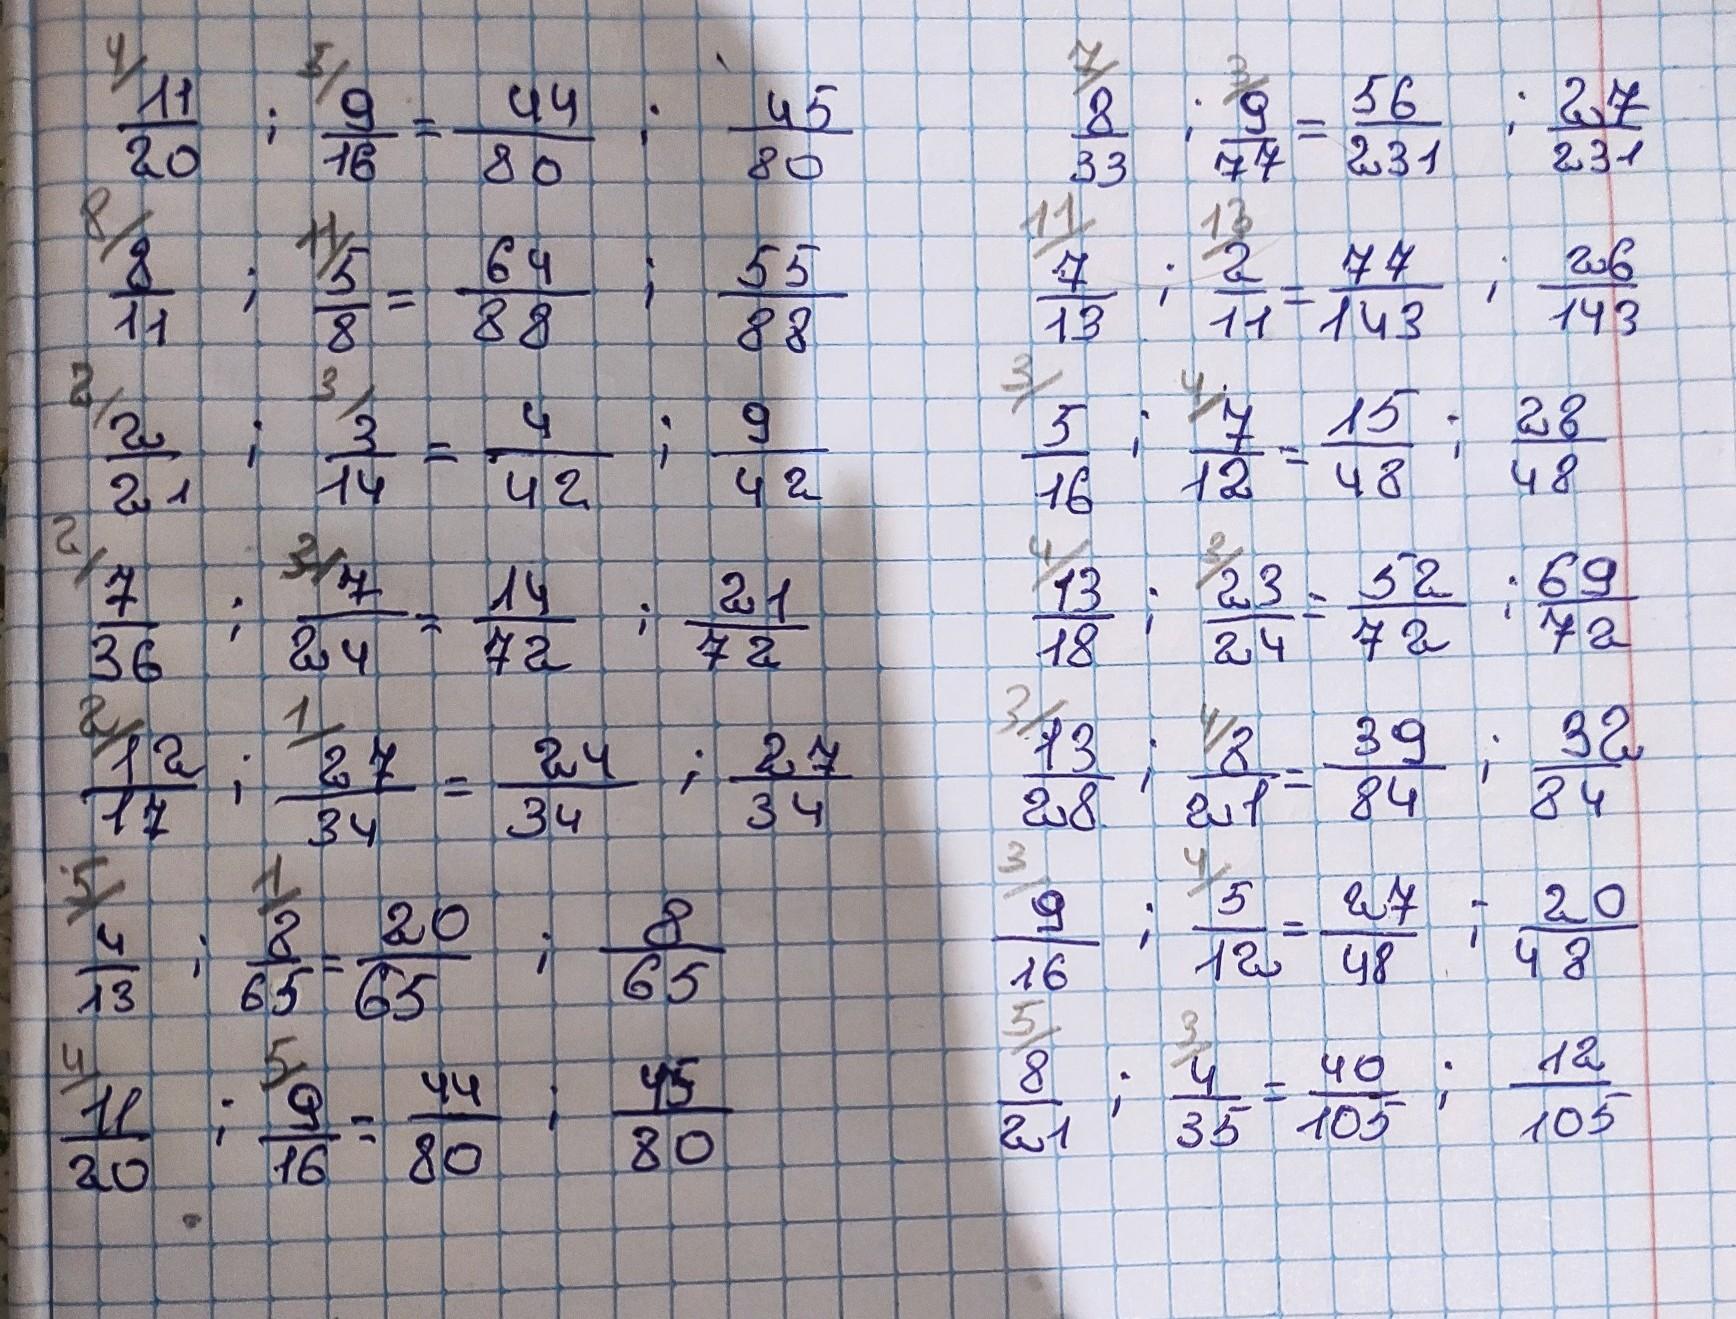 4/ 11/20 ; 5/ 9/16 = 44/80 ; 45/80
8/ 8/11 ; 11/ 5/8 = 64/88 ; 55/88
2/ 2/21 ; 3/ 3/14 = 4/42 ; 9/42
2/ 7/36 ; 3/ 7/24 = 14/72 ; 21/72
2/ 12/17 ; 1/ 27/34 = 24/34 ; 27/34
5/ 4/13 ; 1/ 8/65 = 20/65 ; 8/65
4/ 11/20 ; 5/ 9/16 = 44/80 ; 45/80
7/ 8/33 ; 3/ 9/77 = 56/231 ; 27/231
11/ 7/13 ; 13/ 2/11 = 77/143 ; 26/143
3/ 5/16 ; 4/ 7/12 = 15/48 ; 28/48
4/ 13/18 ; 3/ 23/24 = 52/72 ; 69/72
3/ 13/28 ; 4/ 8/21 = 39/84 ; 32/84
3/ 9/16 ; 4/ 5/12 = 27/48 ; 20/48
5/ 8/21 ; 3/ 4/35 = 40/105 ; 12/105